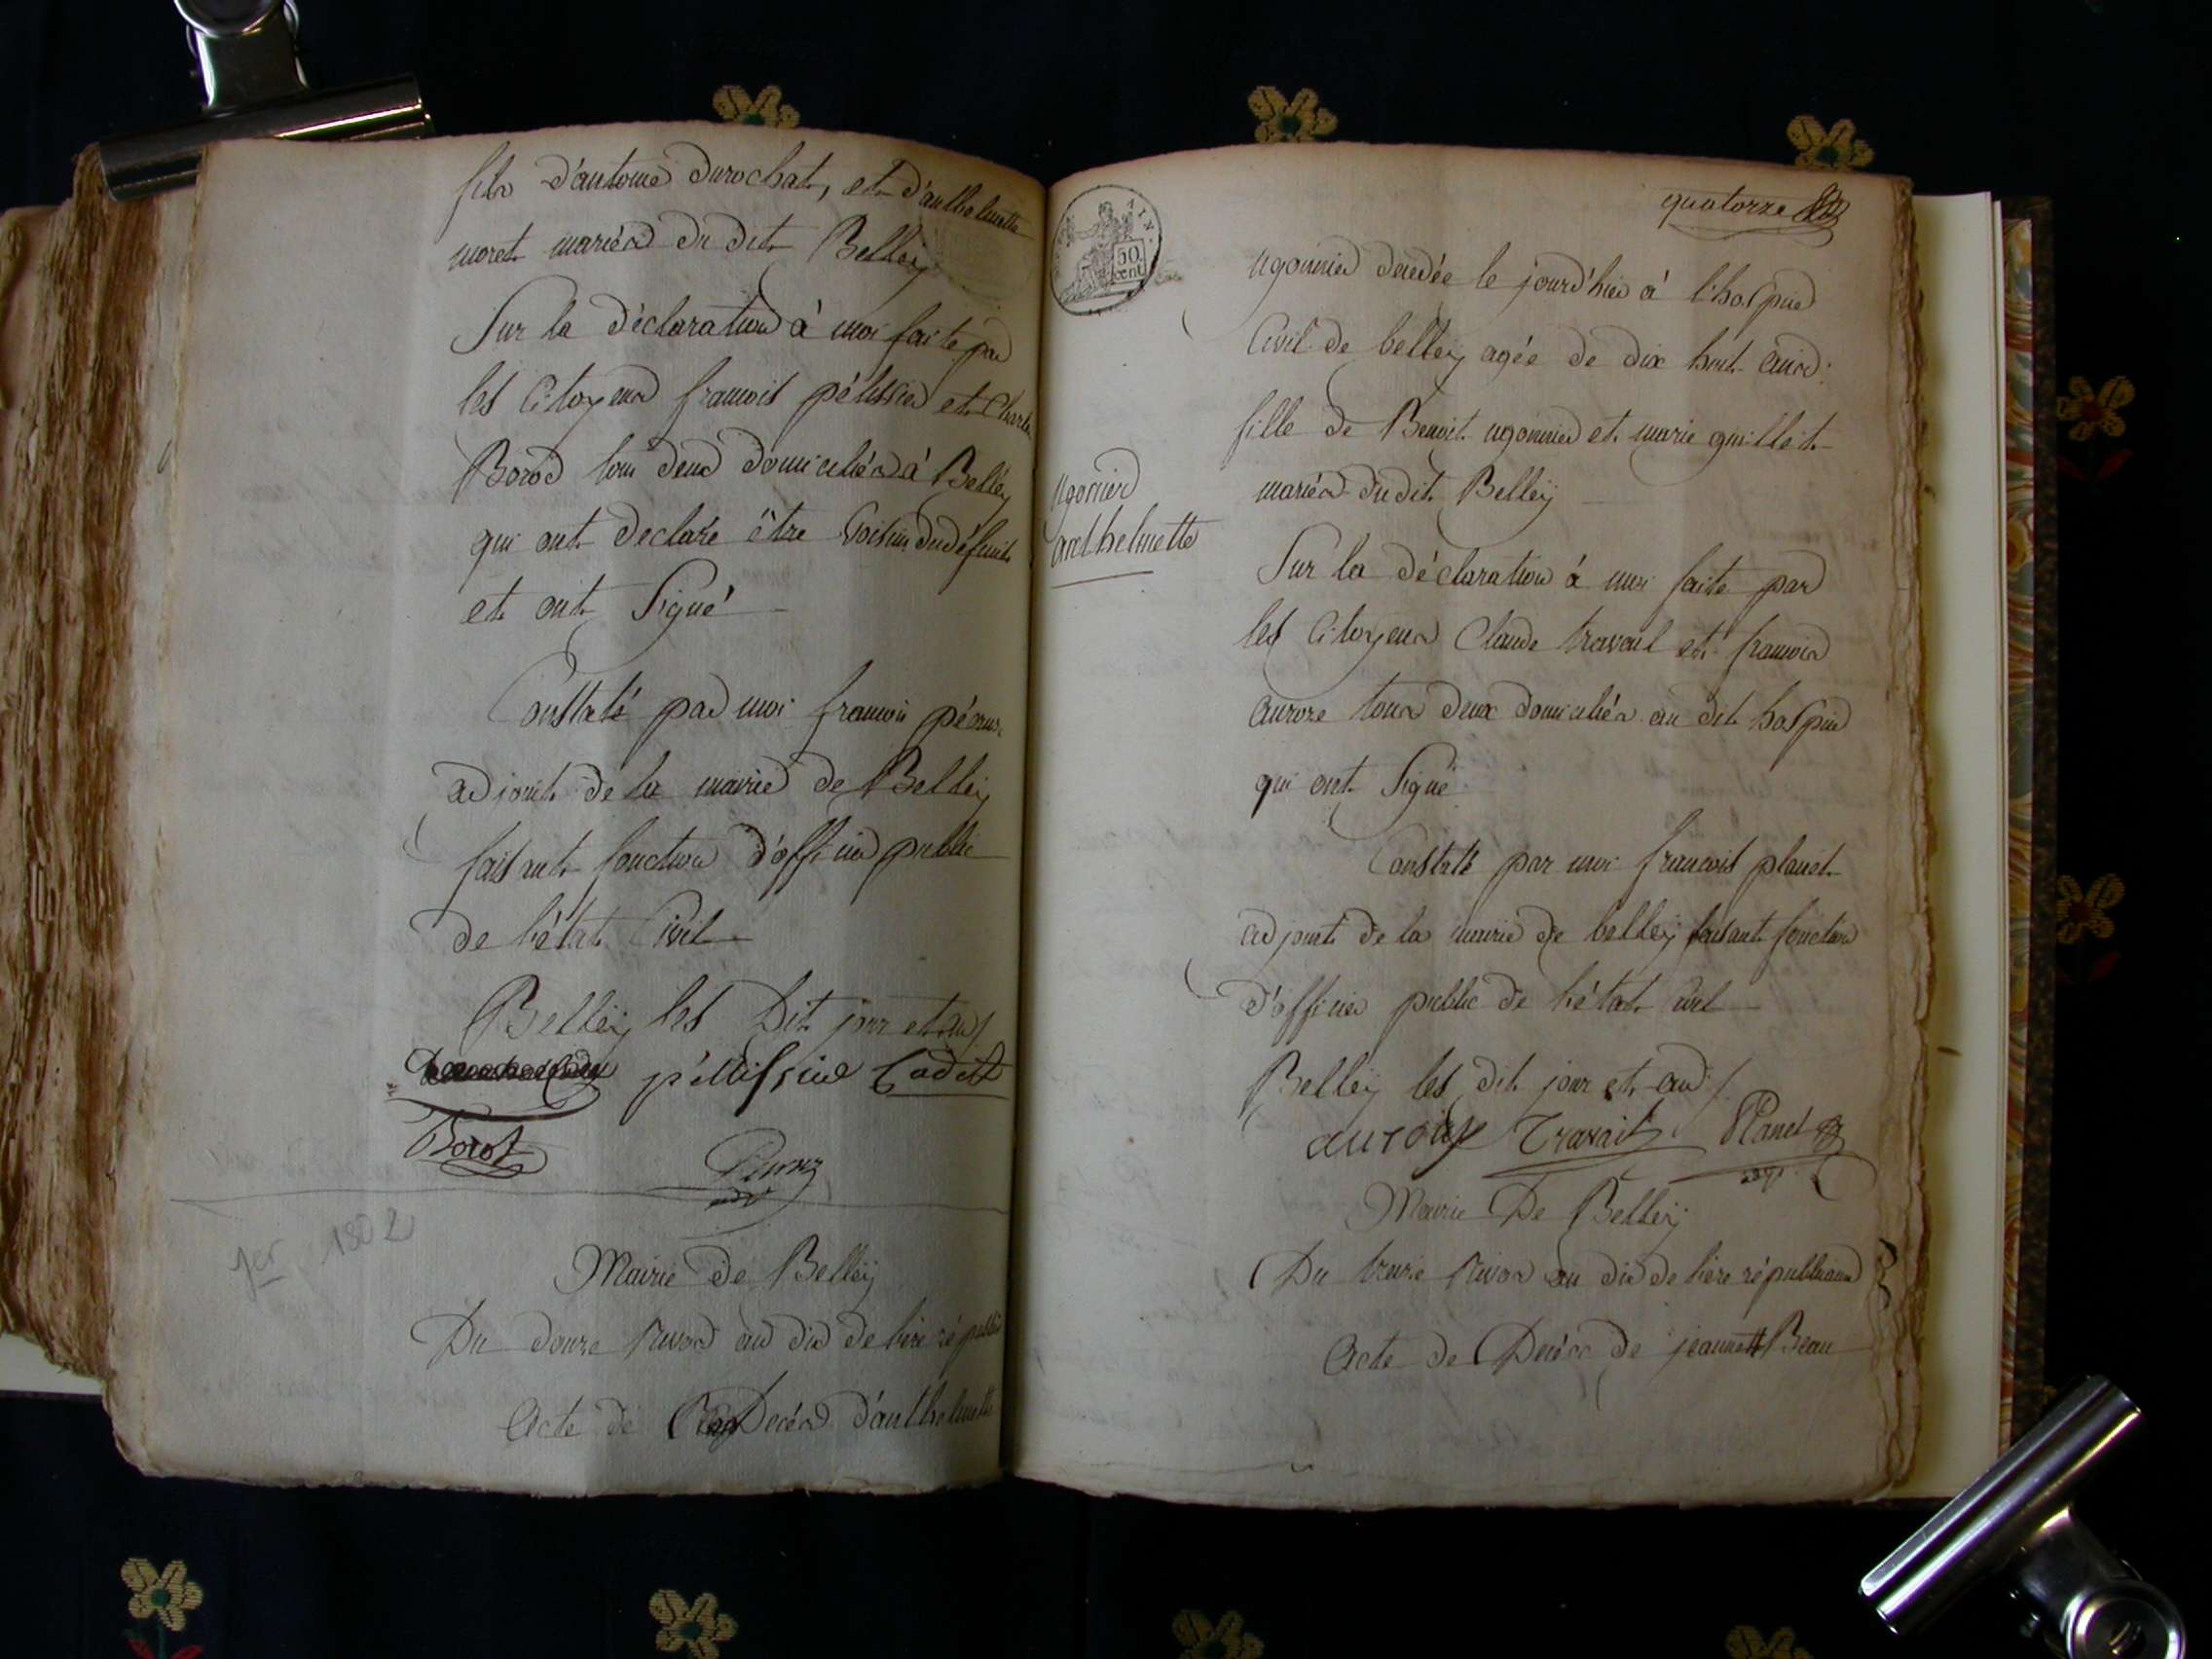 fils d'antoine Durochat, et d'anthelmette
moret mariés du dit Belleÿ
Sur la déclaration à moi faite par
les Citoyens francois pélissier et Charles
Borod tous deux domiciliés à Belleÿ
qui ont declaré être Voisins du défunt
et ont Signé
Constaté par moi francois
adjoint de la mairie de Belleÿ
faisant fonction d'officier public
de l'état Civil
Belleÿ les Dit jour et an
péllissier Cadet
Borot
1er 1802
Mairie de Belleÿ
Du douze Nivos an dix de l'ère républi
Acte de Decés d'anthelmette
quatorze
AIN.
50.
cent
ugonnier decedée le jourd'hier à l'hospice
Civil de belleÿ agée de dix huit ans
fille de Benoit ugonnier et marie guilleit
mariés du dit Belleÿ
Ugonier
anthelmette
Sur la déclaration à moi faite par
les Citoyens Claude travail et francois
aurore tous deux domiciliés au dit hospice
qui ont Signé
Constaté par moi francois planet
adjoint de la mairie de belleÿ faisant fonction
d'officier public de l'état civil
Belleÿ les dit jour et an
Travail Planet
Mairie De Belleÿ
Du treize Nivos an dix de l'ère républicaine
Acte de Decés de jeannette Beau